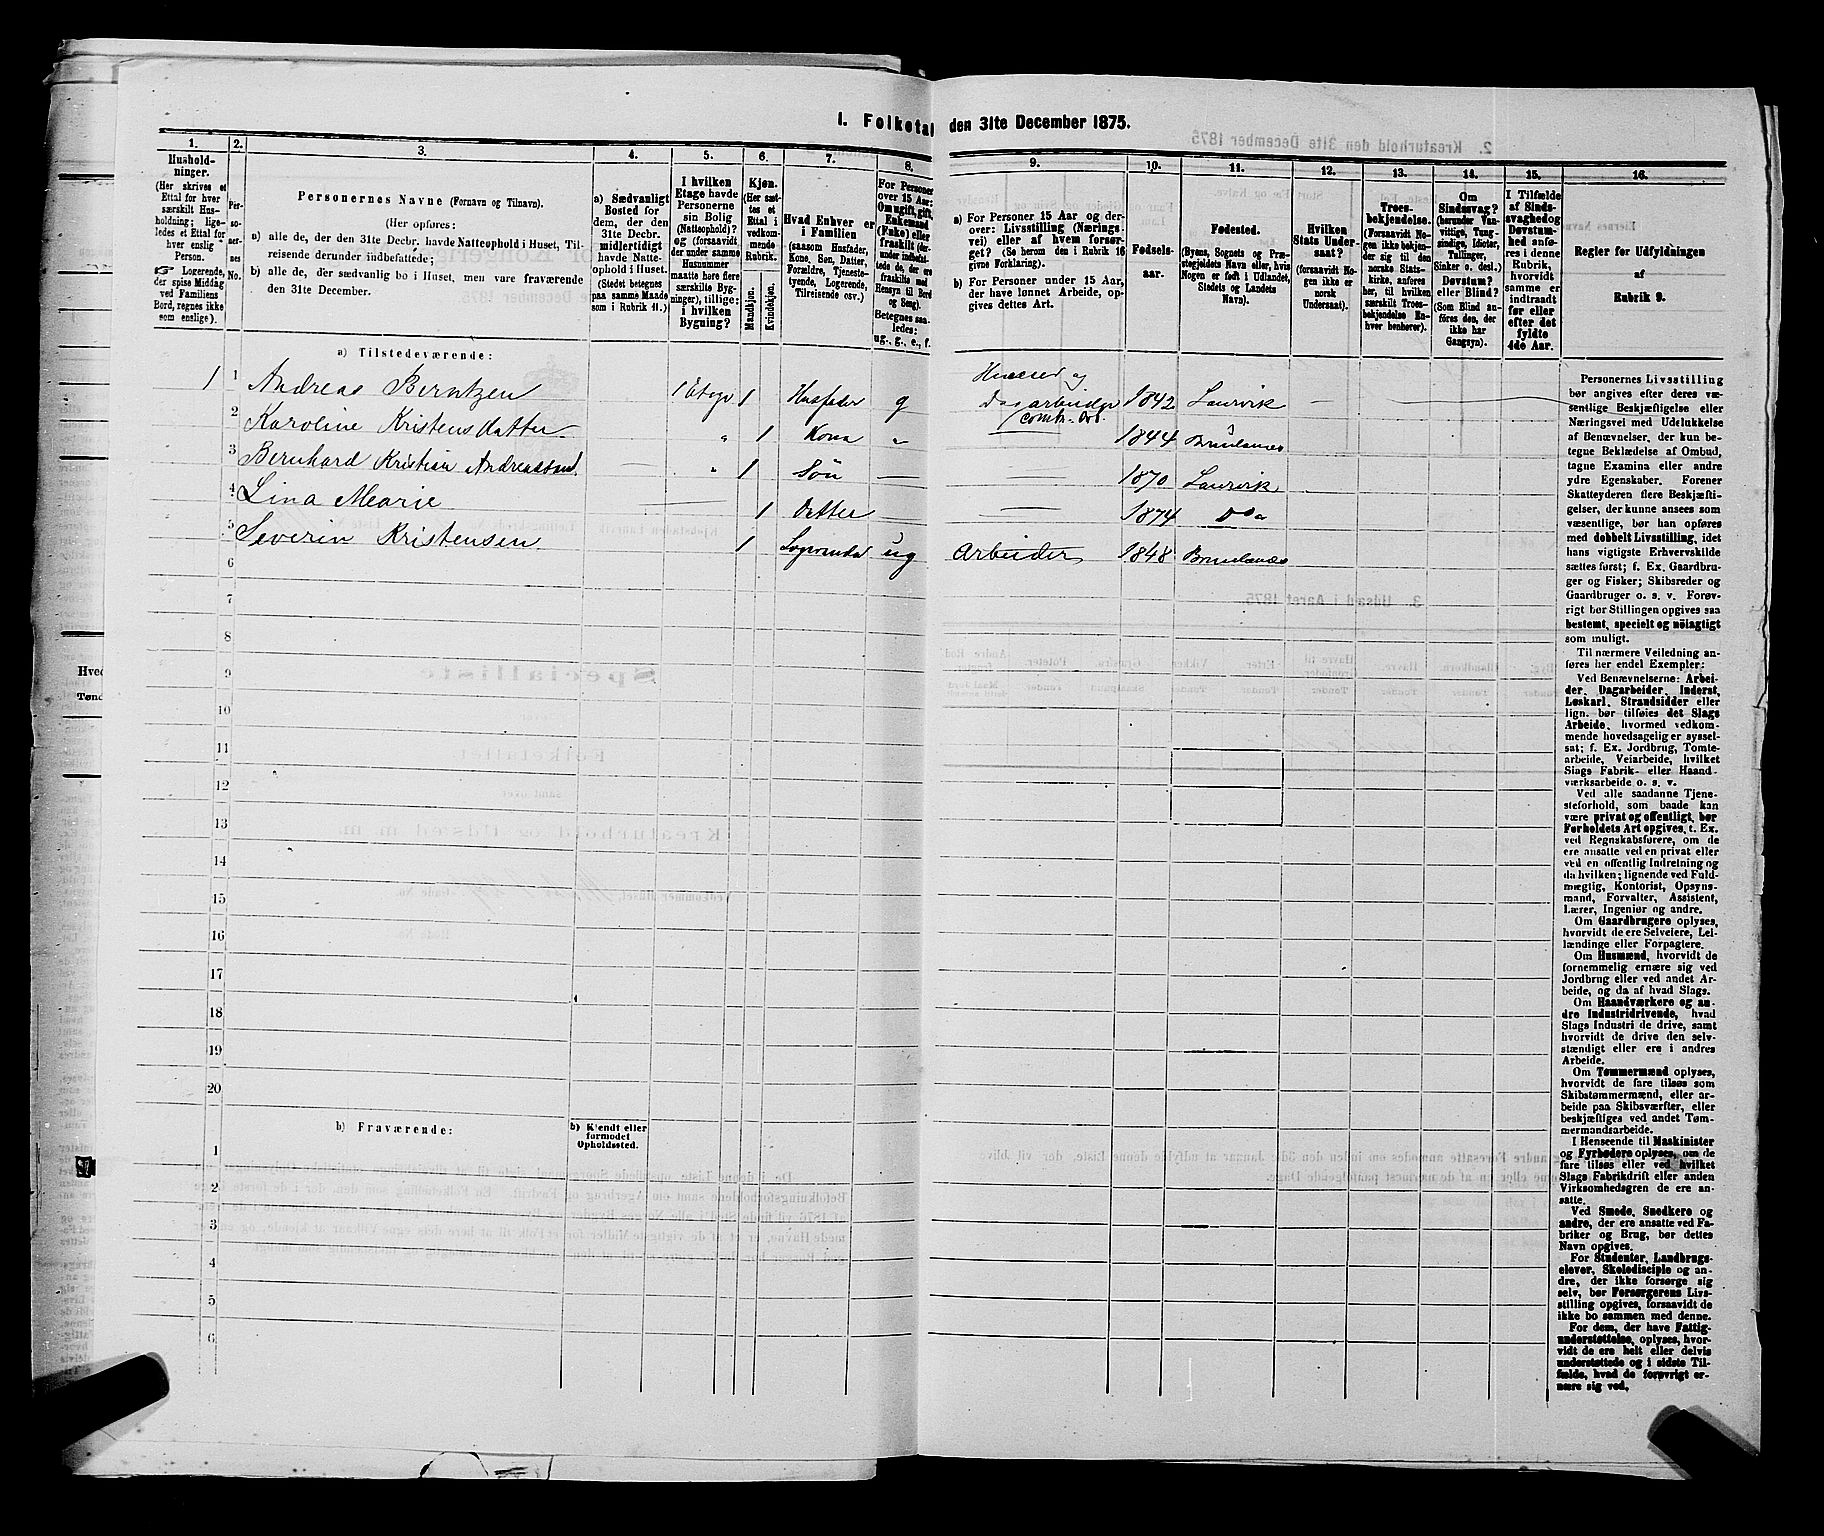 I. Folketal den 31te December 1875.
1. 2. 3. 4. 5. 6. 7. 8. 9. 10. 11. 12. 13. 14. 15. 16.
Hushold-
ninger.
(Her skrives et
Ettal for hver
særskilt Hus-
holdning; lige-
ledes et Ettal for
hver enslig
Person.
☞ Logerende,
der spise Middag
ved Familiens
Bord, regnes ikke
som enslige).
Per-
so-
ner-
nes
No.
Personernes Navne (Fornavn og Tilnavn).
(Her opføres:
a) alle de, der den 31te Decbr. havde Natteophold i Huset, Til-
reisende derunder indbefattede;
b) alle de, der sædvanlig bo i Huset, men vare fraværende
den 31te December.
a) Sædvanligt
Bosted for
dem, der den
31te Decbr.
midlertidigt
havde Natte-
ophold i Huset.
(Stedet betegnes
paa samme Maade
som i Rubrik 11.)
I hvilken
Etage havde
Personerne
sin Bolig
(Natteophold)?
og (forsaavidt
der under samme
Husnummer
maatte høre flere
særskilte Byg-
ninger), tillige:
i hvilken
Bygning?
Kjøn.
(Her sæt-
tes et
Ettal i
vedkom-
mende
Rubrik.
Mandkjøn.
Kvindekjøn.
Hvad Enhver er
i Familien
(saasom Husfader,
Kone, Søn, Datter,
Forældre, Tjeneste-
tyende, Logerende,
Tilreisende osv.)
For Personer
over 15 Aar:
Om ugift, gift,
Enkemand
(Enke) eller
fraskilt (der-
under indbefat-
tede de, der ere
fraskilte med
Hensyn til Bord
og Seng).
Betegnes saa-
ledes:
ug., g., e., f.
a) For Personer 15 Aar og der-
over: Livsstilling (Nærings-
vei) eller af hvem forsør-
get? (Se herom den i Rubrik 16
givne Forklaring).
b) For Personer under 15 Aar,
der have lønnet Arbeide, op-
gives dettes Art.
Fødsels-
aar.
Fødested.
(Byens, Sognets og Præ-
stegjeldets Navn eller, hvis
Nogen er født i Udlandet,
Stedets og Landets
Navn).
Hvilken
Stats Under-
saat?
(forsaavidt No-
gen ikke er
norsk
Undersaat).
Troes-
bekjendelse.
(Forsaavidt No-
gen ikke bekjen-
der sig til den
norske Stats-
kirke, anføres
her, til hvilken
særskilt Troes-
bekjendelse En-
hver benhører).
Om
Sindssvag?
(herunder Van-
vittige, Tung-
sindige, Idioter,
Tullinger,
Sinker o. desl.)
Døvstum?
eller Blind?
(Som Blind an-
føres den, der
ikke har
Gangsyn).
I Tilfælde
af Sinds-
svaghed og
Døvstum-
hed anfø-
res i denne
Rubrik,
hvorvidt
samme er
indtraadt
før eller
efter det
fyldte
4de Aar.
Regler for Udfyldningen
af
Rubrik 9.
a) Tilstedeværende:
1 1 Andreas Berntzen 1 Etage 1 Husfader g Huuseier og dagarbeider 1842 Laurvik
2 Karoline Kristensdatter " 1 Kona " 1844 Brunlanes
3 Bernhard Kristian Andreassen " 1 Søn 1870 Laurvik
4 Lina Marie 1 Datter 1874 Do
5 Severin Kristensen 1 Logerende ug Arbeider 1848 Brunlanes
6
7
8
9
10
11
12
13
14
15
16
17
18
19
20
b) Fraværende:
b) Kjendt eller
formodet
Opholdssted.
1
2
3
4
5
6
Personernes Livsstilling
bør angives efter deres væ-
sentlige Beskjæftigelse eller
Næringsvei med Udelukkelse
af Benævnelser, der kun be-
tegne Beklædelse af Ombud,
tagne Examina eller andre
ydre Egenskaber. Forener
Skatteyderen flere Beskjæfti-
gelser, der kunne ansees som
væsentlige, bør han opføres
med dobbelt Livsstilling, idet
hans vigtigste Erhvervskilde
sættes først; f. Ex. Gaardbru-
ger og Fisker; Skibsreder og
Gaardbruger o. s. v. Forøv-
rigt bør Stillingen opgives saa
bestemt, specielt og nöiagtigt
som muligt.
Til nærmere Veiledning an-
føres her endel Exempler:
Ved Benævnelserne: Arbei-
der, Dagarbeider, Inderst,
Løskarl, Strandsidder eller
lign. bør tilføies det Slags
Arbeide, hvormed vedkom-
mende hovedsagelig er syssel-
sat; f. Ex. Jordbrug, Tomte-
arbeide, Veiarbeide, hvilket
Slags Fabrik- eller Haand-
værksarbeide o. s. v.
Ved alle saadanne Tjene-
steforhold, som baade kan
være privat og offentligt, bør
Forholdets Art opgives, t. Ex.
ved Regnskabsførere, om de
ere ansatte ved en privat eller
ved en offentlig Indretning og
da hvilken; lignende ved Fuld-
mægtig, Kontorist, Opsyns-
mand, Forvalter, Assistent,
Lærer, Ingeniør og andre.
Om Gaardbrugere oplyses,
hvorvidt de ere Selveiere, Lei-
lændinge eller Forpagtere.
Om Husmænd, hvorvidt de
fornemmelig ernære sig ved
Jordbrug eller ved andet Ar-
beide, og da af hvad Slags.
Om Haandværkere og an-
dre Industridrivende, hvad
Slags Industri de drive, samt
hvorvidt de drive den selv-
stændigt eller ere i andres
Arbeide.
Om Tømmermænd oplyses,
hvorvidt de fare tilsøs som
Skibstømmermænd, eller ar-
beide paa Skibsværfter, eller
beskjæftiges ved andet Tøm-
mermandsarbeide.
I Henseende til Maskinister
og Fyrbødere oplyses, om de
fare tilsøs eller ved hvilket
Slags Fabrikdrift eller anden
Virksomhedsgren de ere an-
satte.
Ved Smede, Snedkere og
andre, der ere ansatte ved Fa-
briker og Brug, bør dettes
Navn opgives.
For Studenter, Landbrugs-
elever, Skoledisciple og an-
dre, der ikke forsørge sig
selv, bør Forsørgerens Livs-
stilling opgives, forsaavidt de
ikke bo sammen med denne.
For dem, der have Fattig-
understøttelse, oplyses, hvor-
vidt de ere helt eller delvis
understøttede og i sidste Til-
fælde, hvad de forøvrigt er-
nære sig ved.